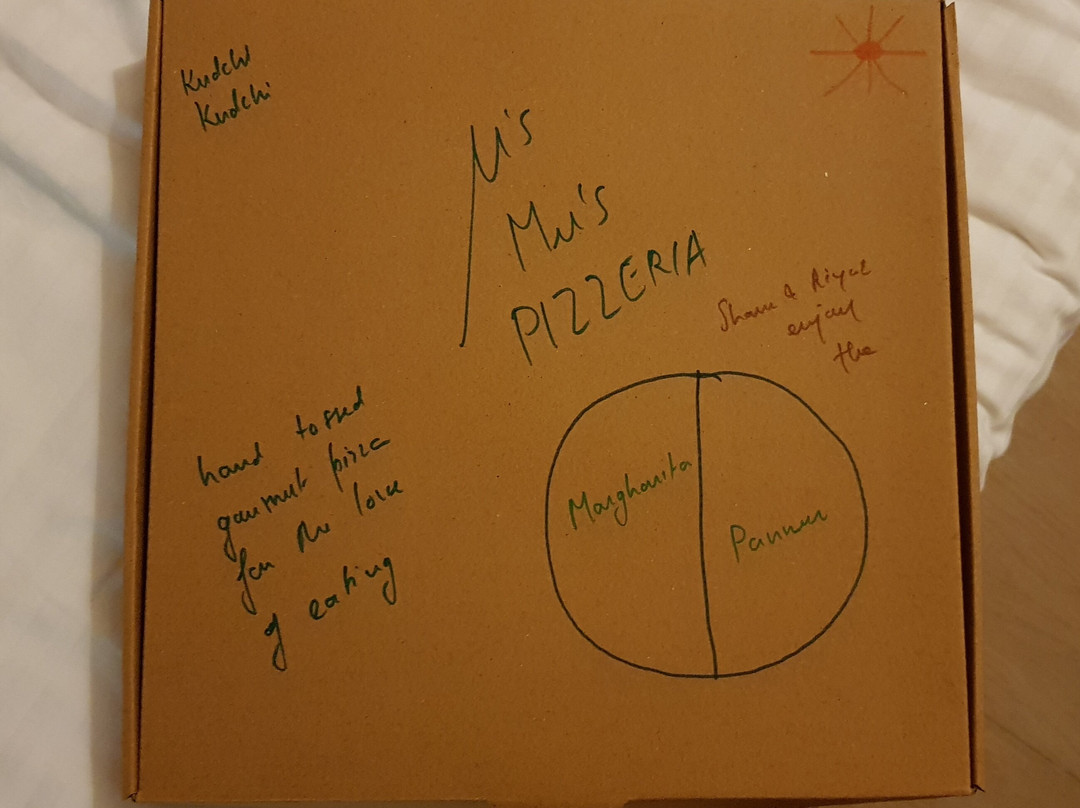 Kudchi
Kudchi
M's
Mu's
PIZZERIA
& Riyal
enjoy
the
hand tossed
gourmet pizza
for the love
of eating
Margharita
Panner